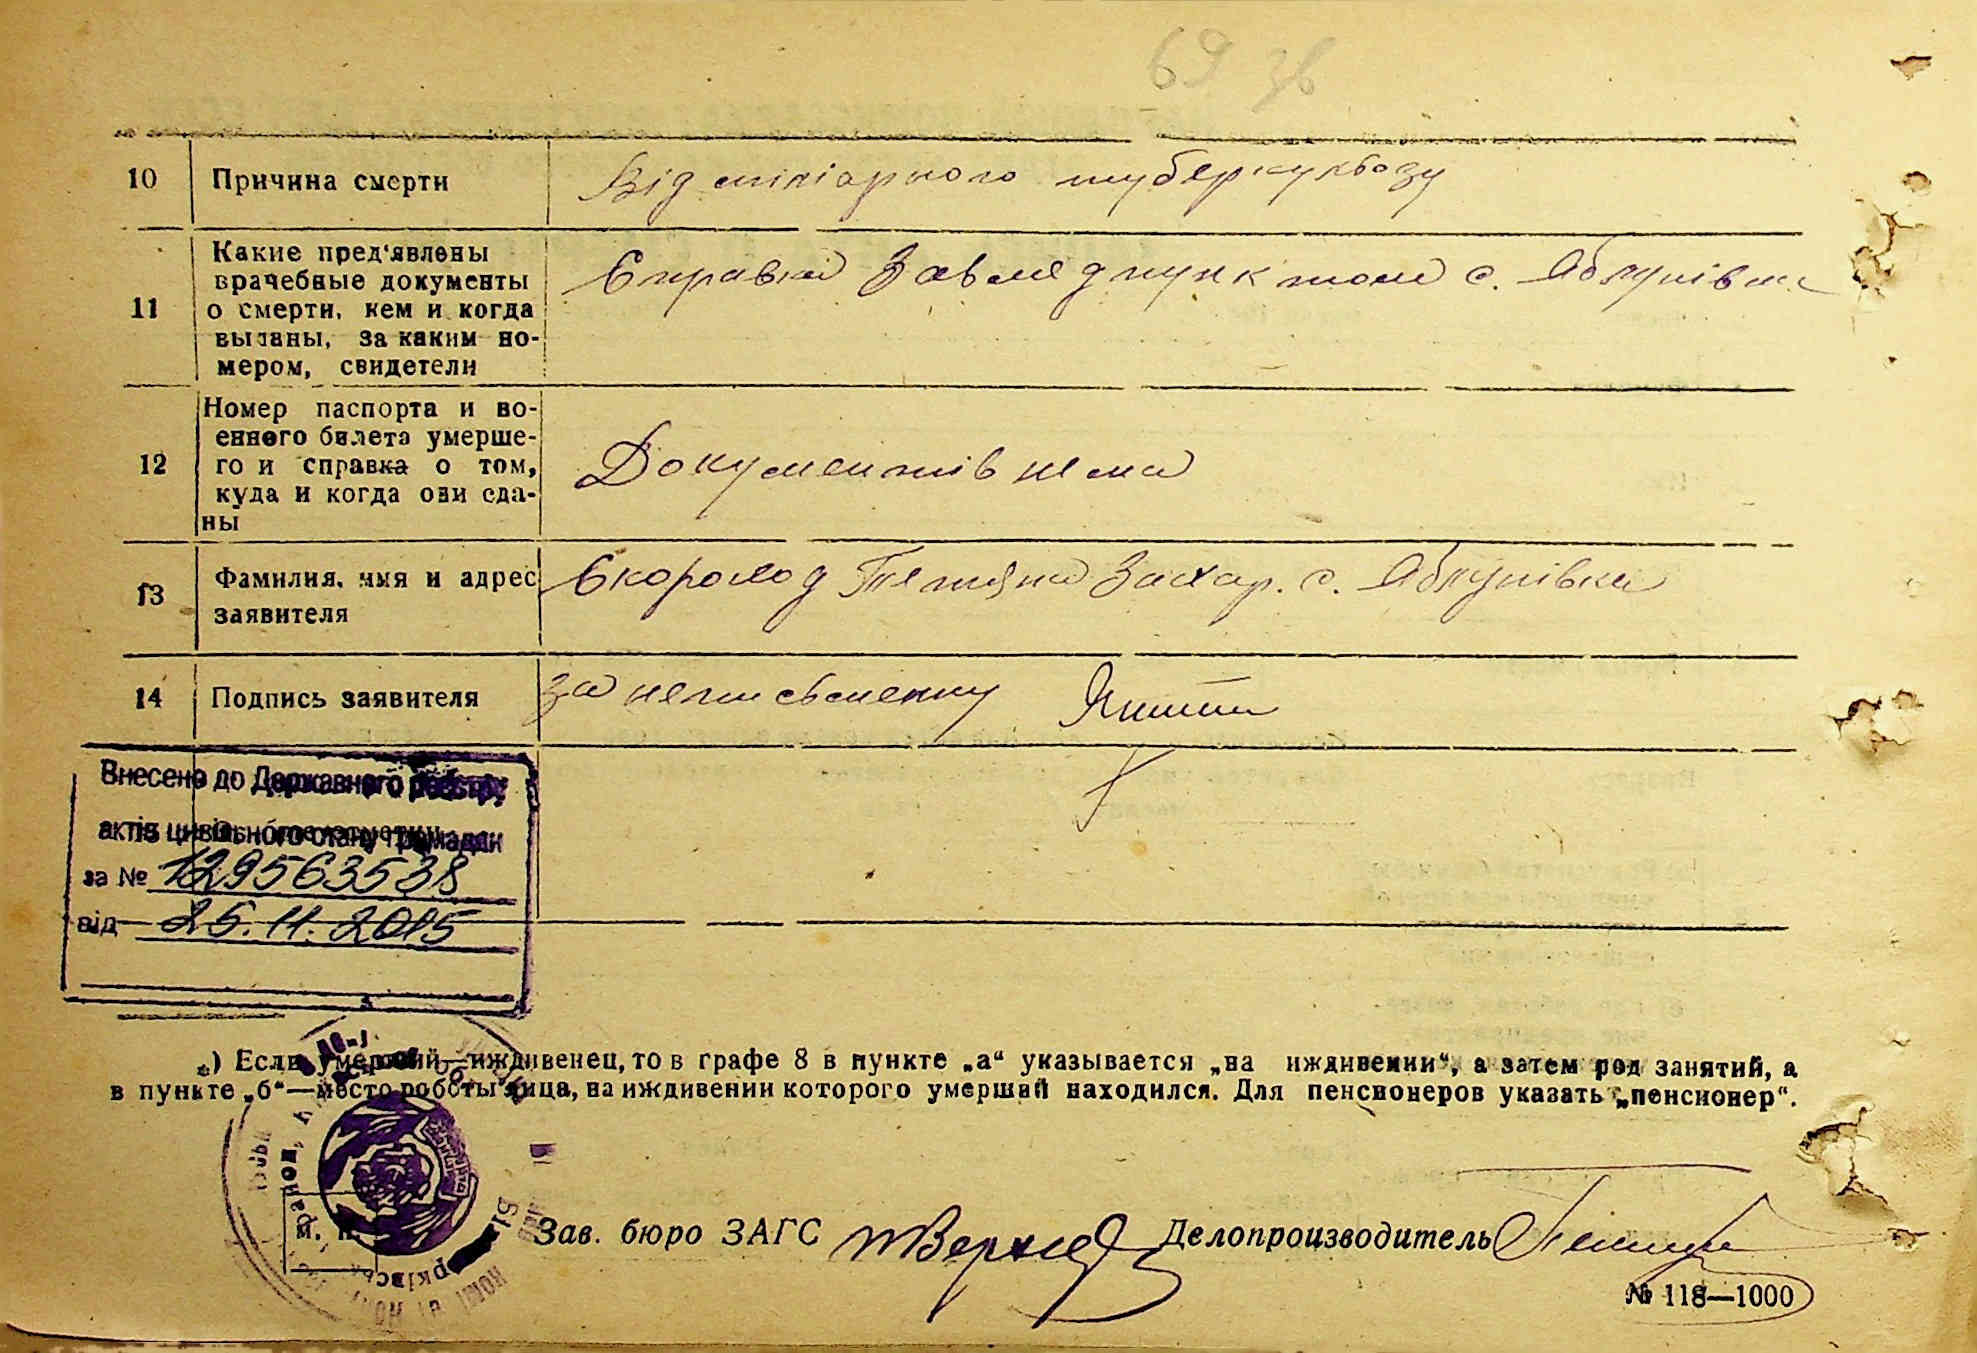 69 зв
10 Причина смерти Від міліарного туберкульозу
11 Какие пред'явлены
врачебные документы
о смерти, кем и когда
выданы, за каким но-
мером, свидетели
Справка Завмедпунктом с. Яблунівка
12 Номер паспорта и во-
енного билета умерше-
го и справка о том,
куда и когда они сда-
ны
Документів нема
13 Фамилия, имя и адрес
заявителя
Скороход Тетяна Захар. с. Яблунівка
14 Подпись заявителя за неписьменну
Внесено до Державного реєстру
актів цивільного стану громадян
за № 129563538
від 25.11.2015
*) Если умерший—иждивенец, то в графе 8 в пункте „а“ указывается „на иждивении“, а затем род занятий, а
в пункте „б“—место роботы лица, на иждивении которого умерший находился. Для пенсионеров указать „пенсионер“.
М. П.
Зав. бюро ЗАГС Делопроизводитель
№ 118—1000